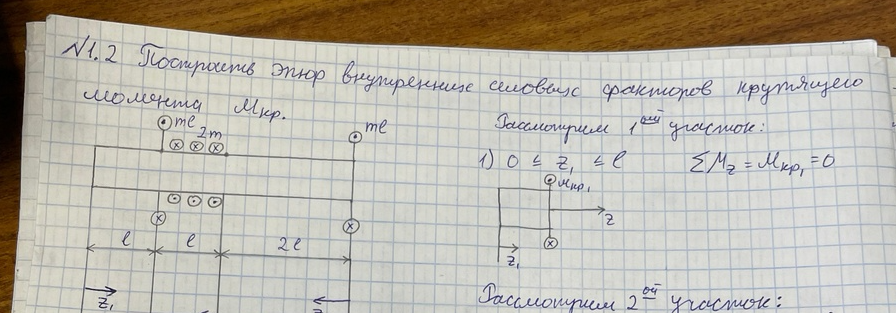 N1.2 Построить эпюр внутренних силовых факторов крутящего
момента Mкр.
ml
2m
ml
l
l
2l
z₁
Рассмотрим 1ый участок:
1) 0 ≤ z₁ ≤ l ΣMz = Mкр₁ = 0
Mкр₁
z
z₁
Рассмотрим 2ой участок: